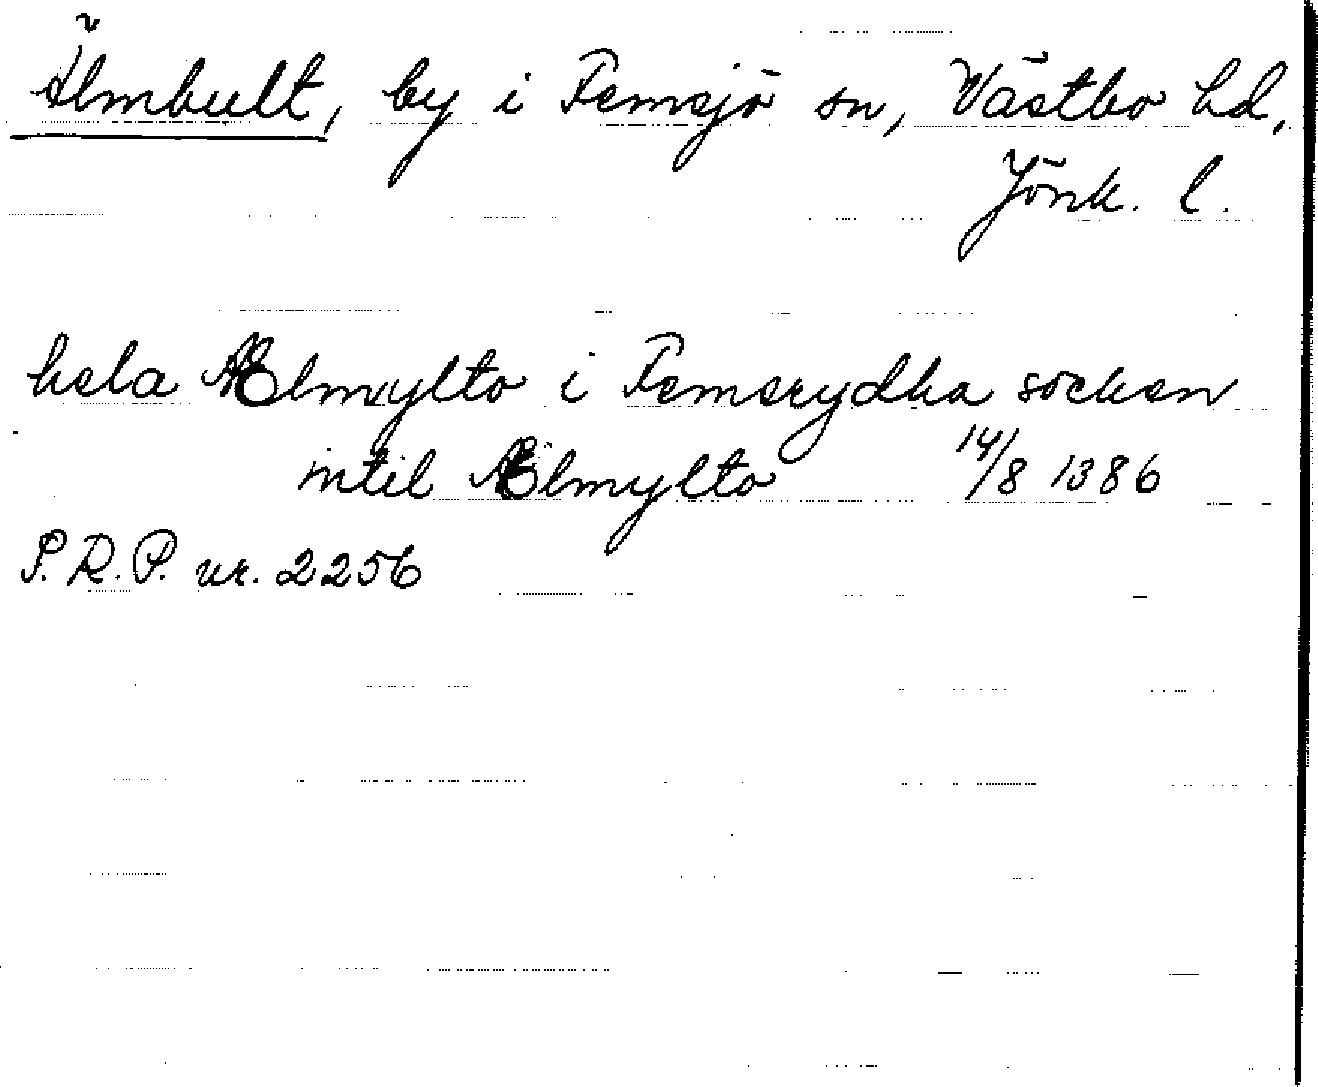 Älmbult, by i Femsjö sn, Västbo hd,
Jönk. l.
hela Ælmylto i Femsrydha socken
intil Ælmylto 14/8 1386
S.R.P. nr. 2256